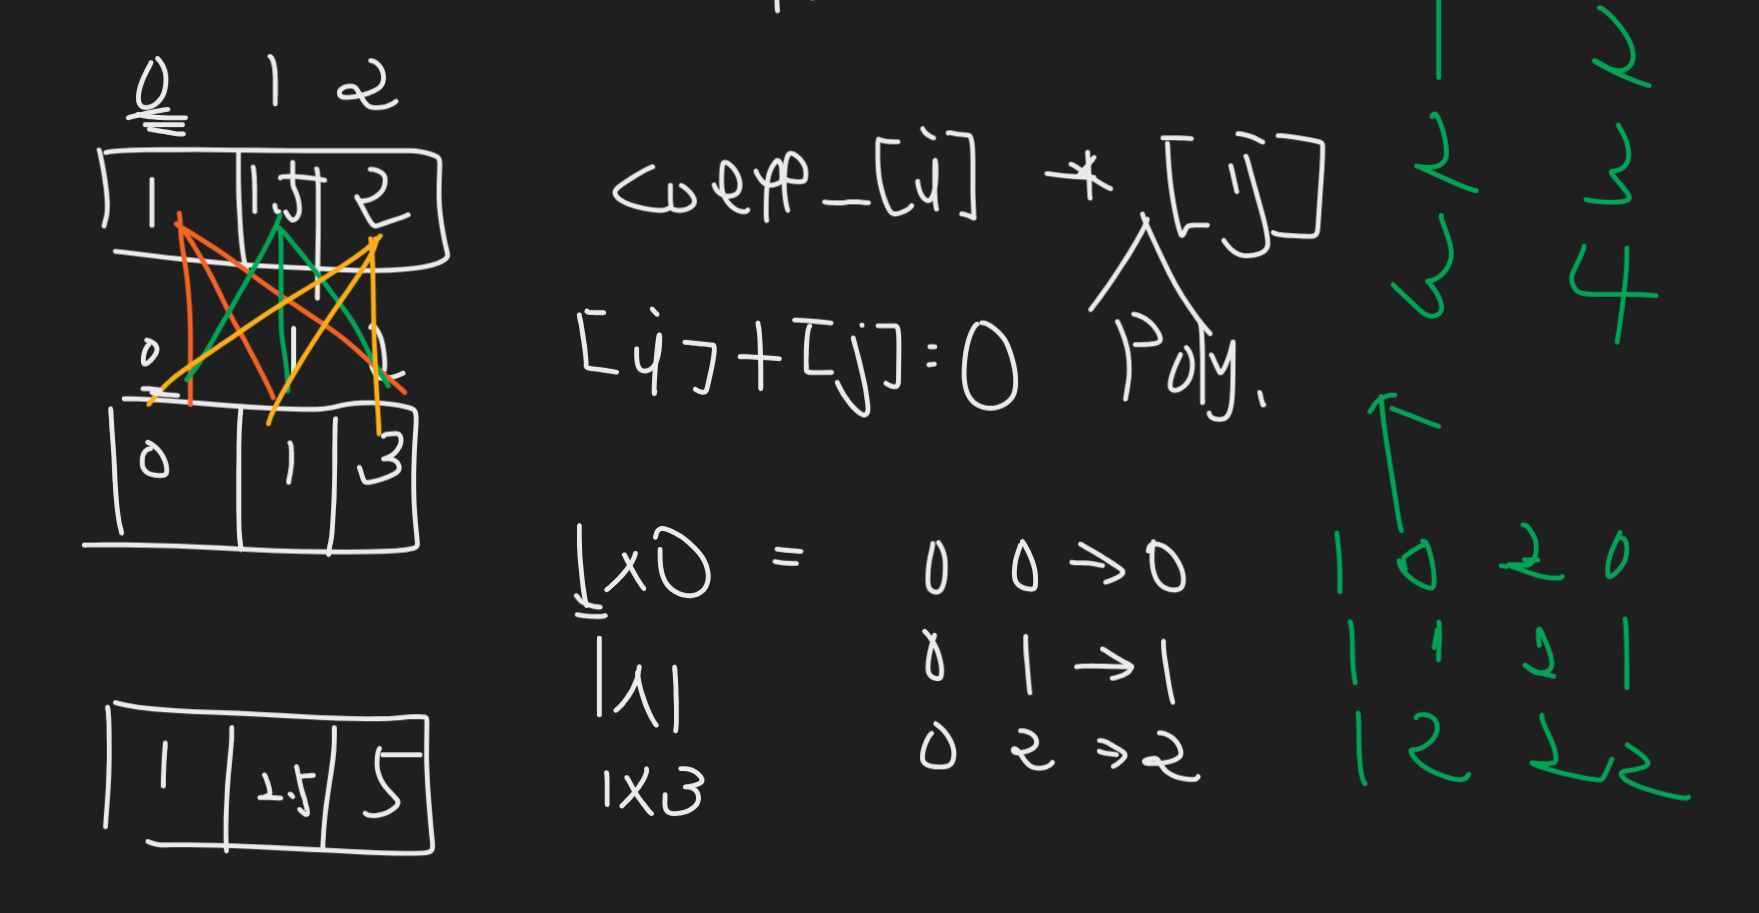 0 1 2
1 1.5 2
coeff_[i] * [j]
0 1 2
[i] + [j] = 0 Poly.
0 1 3
1x0 = 0 0 → 0
1x1 0 1 → 1
1x3 0 2 → 2
1 2.5 5
1 2
2 3
3 4
1 0 2 0
1 1 2 1
1 2 2 2